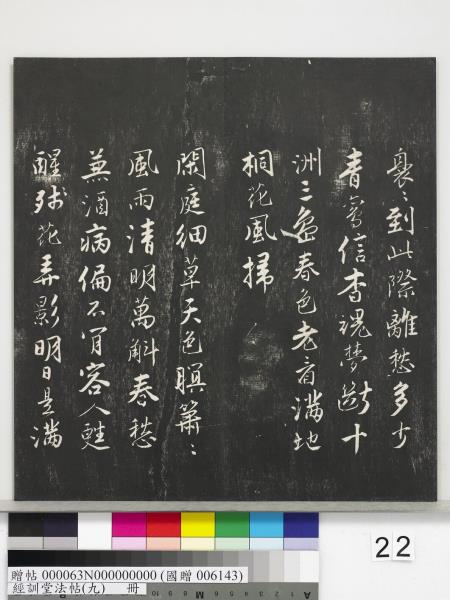 裊〻到此際離愁多少
青鸞信杳魂夢斷十
洲三島春色老看滿地
桐花風掃
閑庭細草天色暝簫〻
風雨清明萬斛春愁
兼酒病偏不肯容人甦
醒殘花弄影明日是滿
22
贈帖 000063N000000000 (國贈 006143)
經訓堂法帖(九) 冊